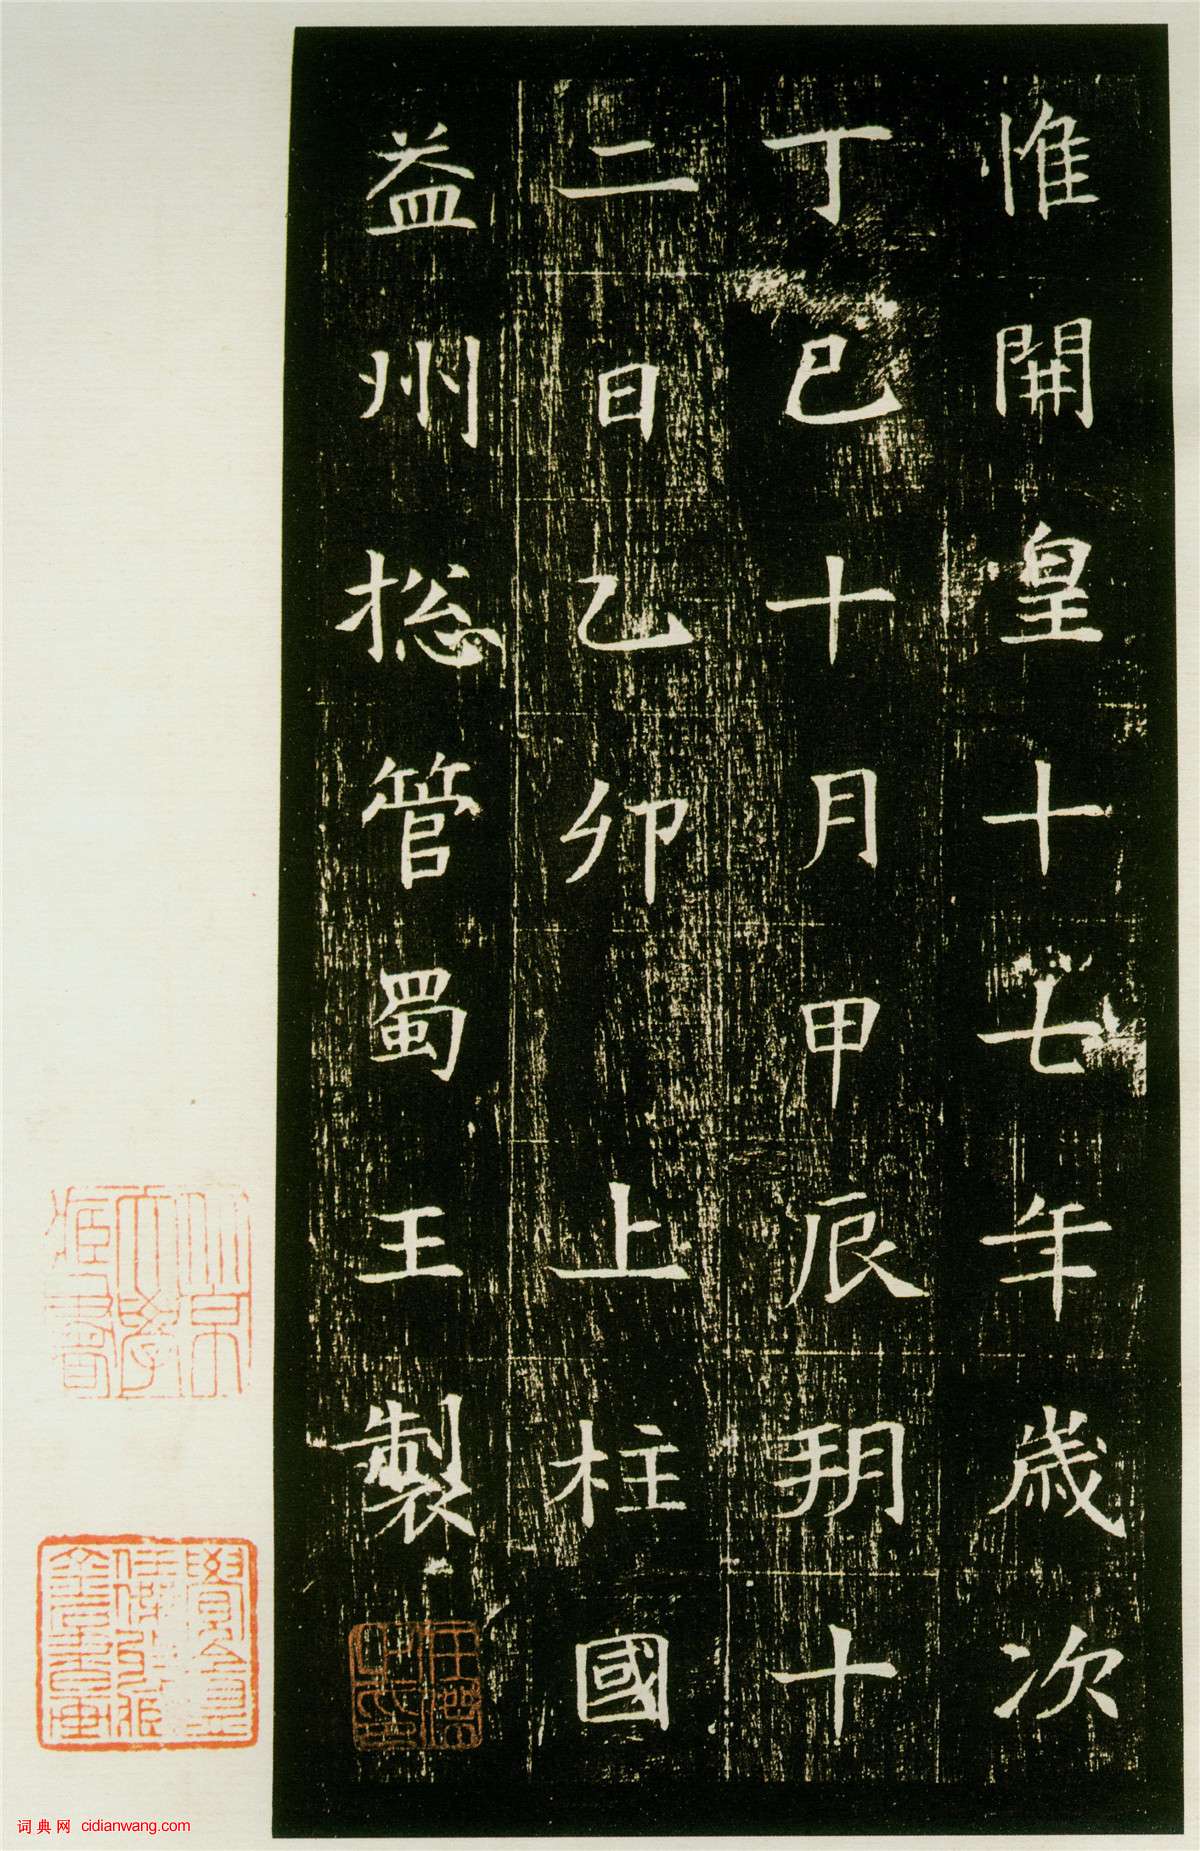 惟開皇十七年歲次
丁巳十月甲辰朔十
二日乙卯 上柱國
益州捴管蜀王製
北京大學藏書
词典网 cidianwang.com